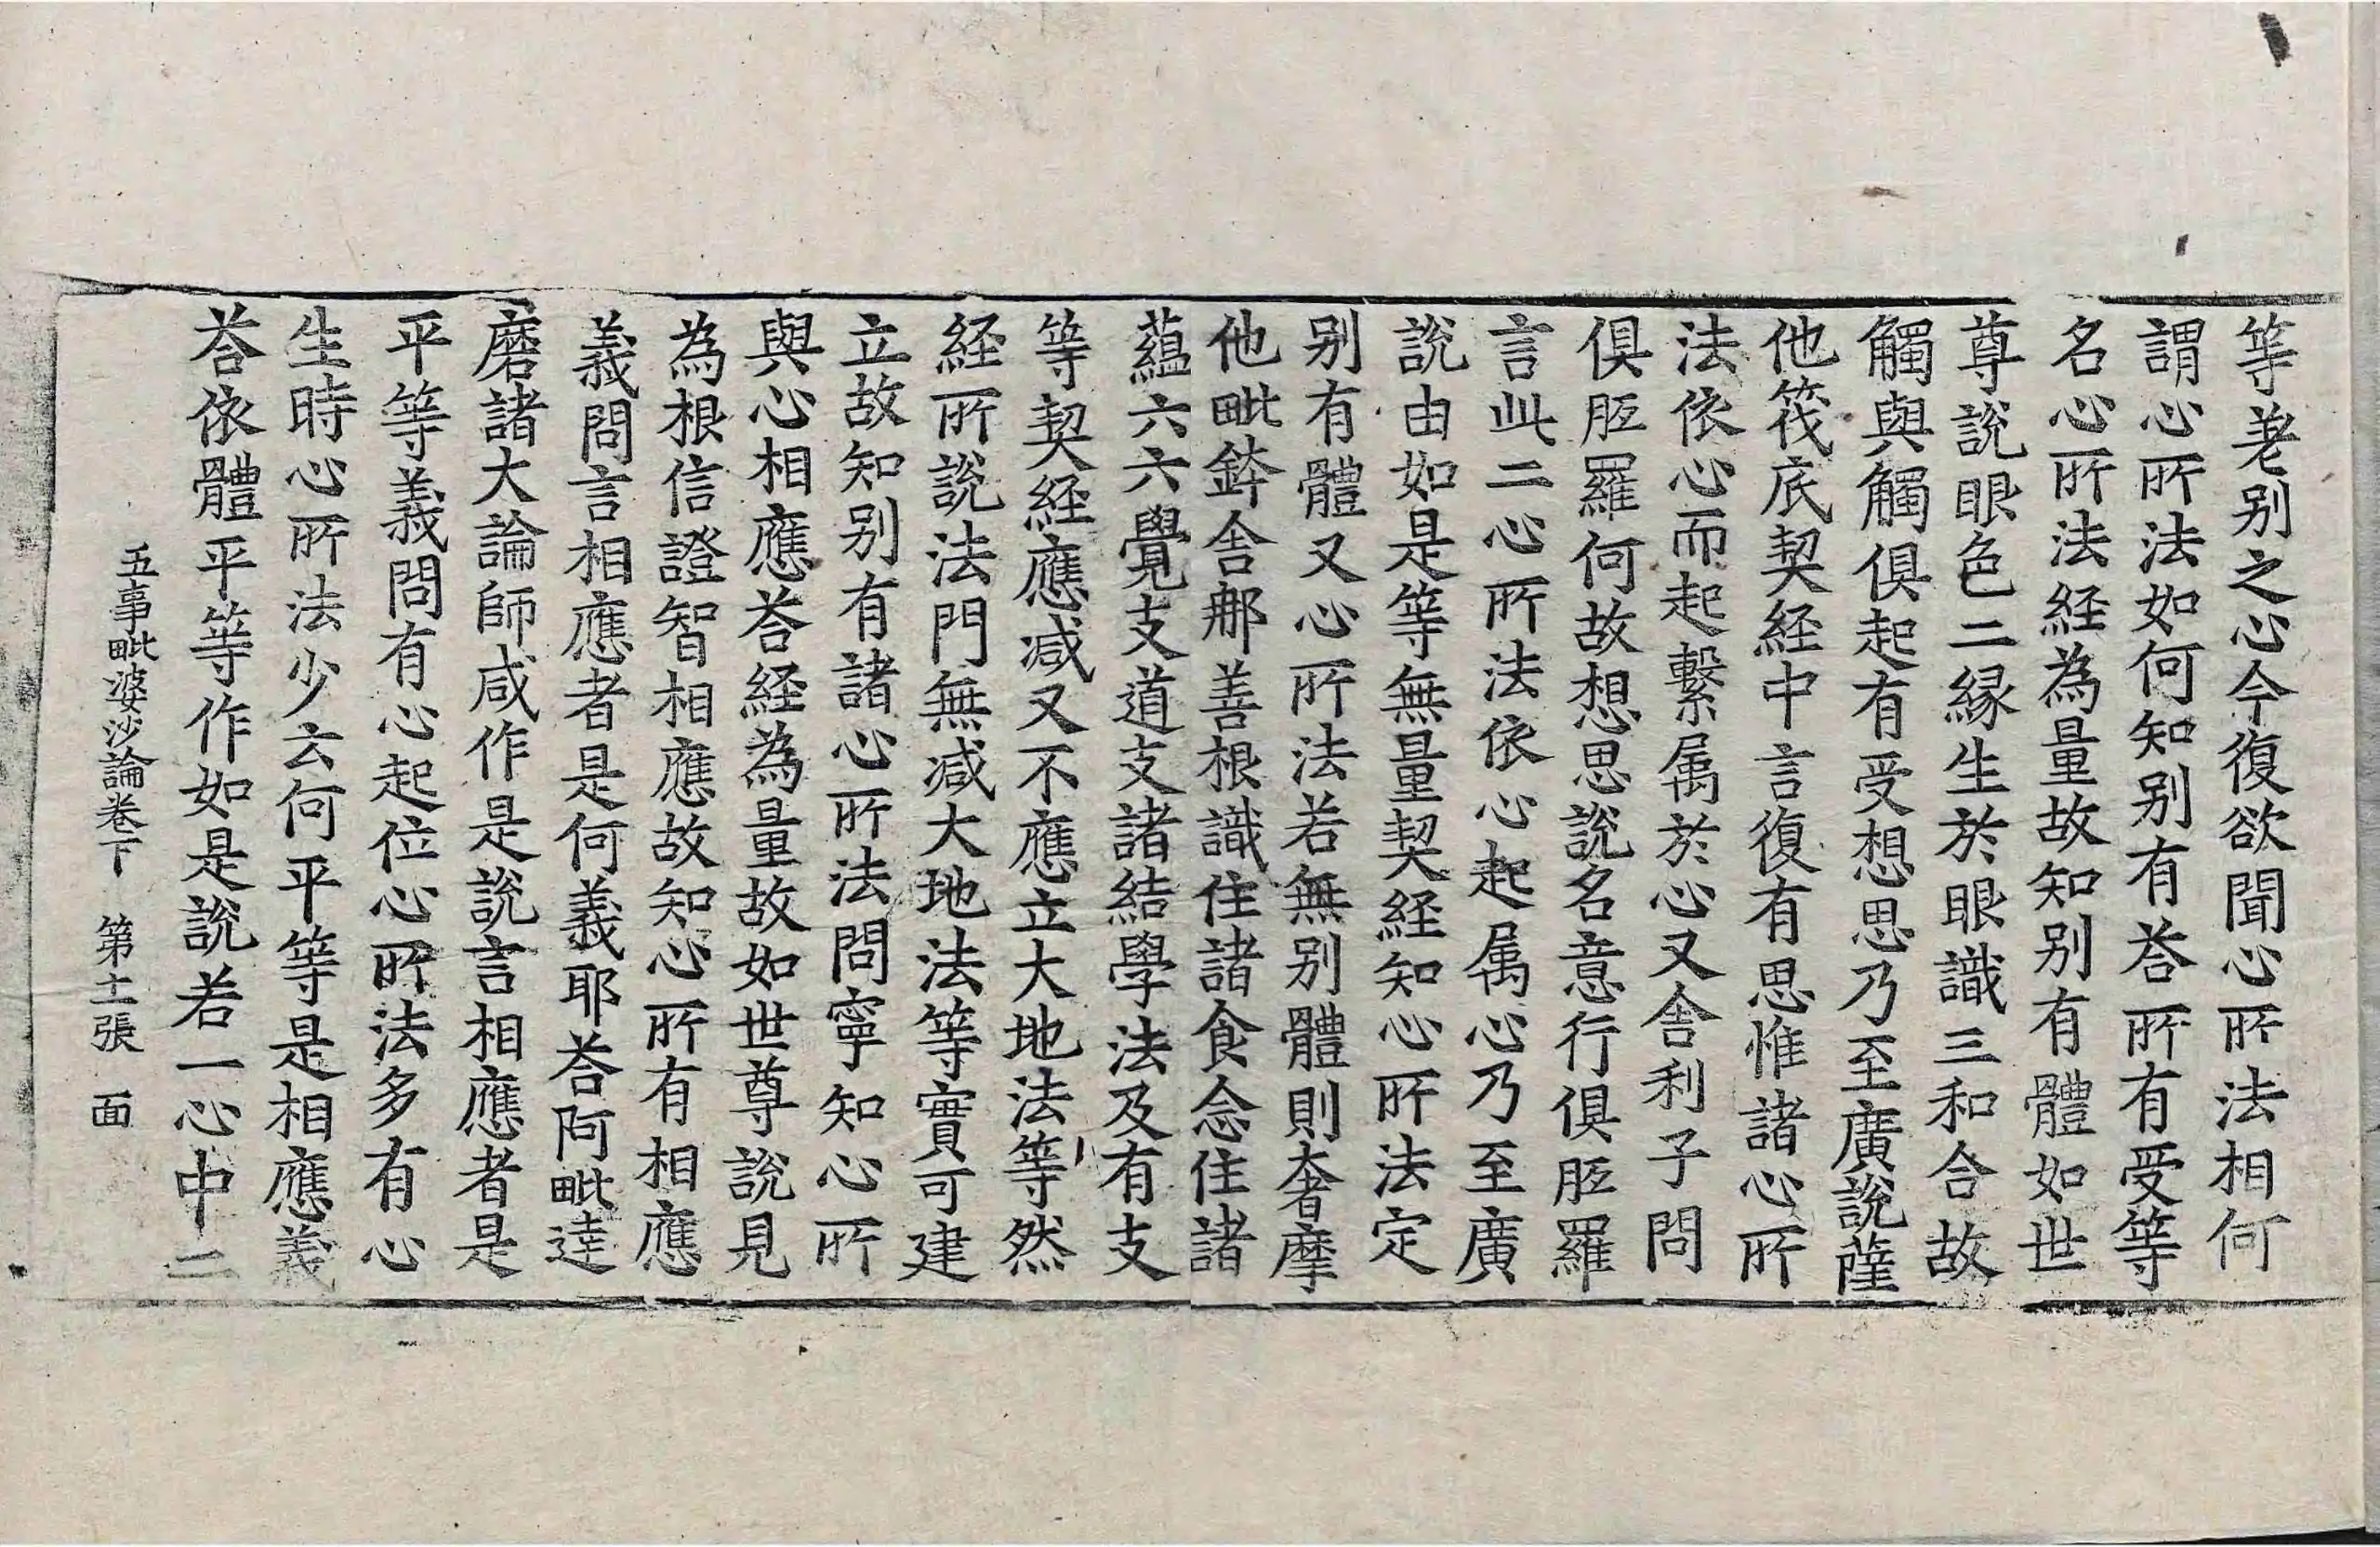 等差别之心今復欲聞心所法相何
謂心所法如何知别有荅所有受等
名心所法経為量故知别有體如世
尊說眼色二縁生於眼識三和合故
觸與觸俱起有受想思乃至廣說薩
他筏底契経中言復有思惟諸心所
法依心而起繋属於心又舍利子問
俱胝羅何故想思說名意行俱胝羅
言此二心所法依心起属心乃至廣
說由如是等無量契経知心所法定
别有體又心所法若無别體則奢摩
他毗鉢舍那善根識住諸食念住諸
藴六六覺支道支諸結學法及有支
等契経應减又不應立大地法等然
経所說法門無减大地法等實可建
立故知别有諸心所法問寧知心所
與心相應荅経為量故如世尊說見
為根信證智相應故知心所有相應
義問言相應者是何義耶荅阿毗達
磨諸大論師咸作是說言相應者是
平等義問有心起位心所法多有心
生時心所法少云何平等是相應義
荅依體平等作如是說若一心中二
五事毗婆沙論卷下　第十一張　面